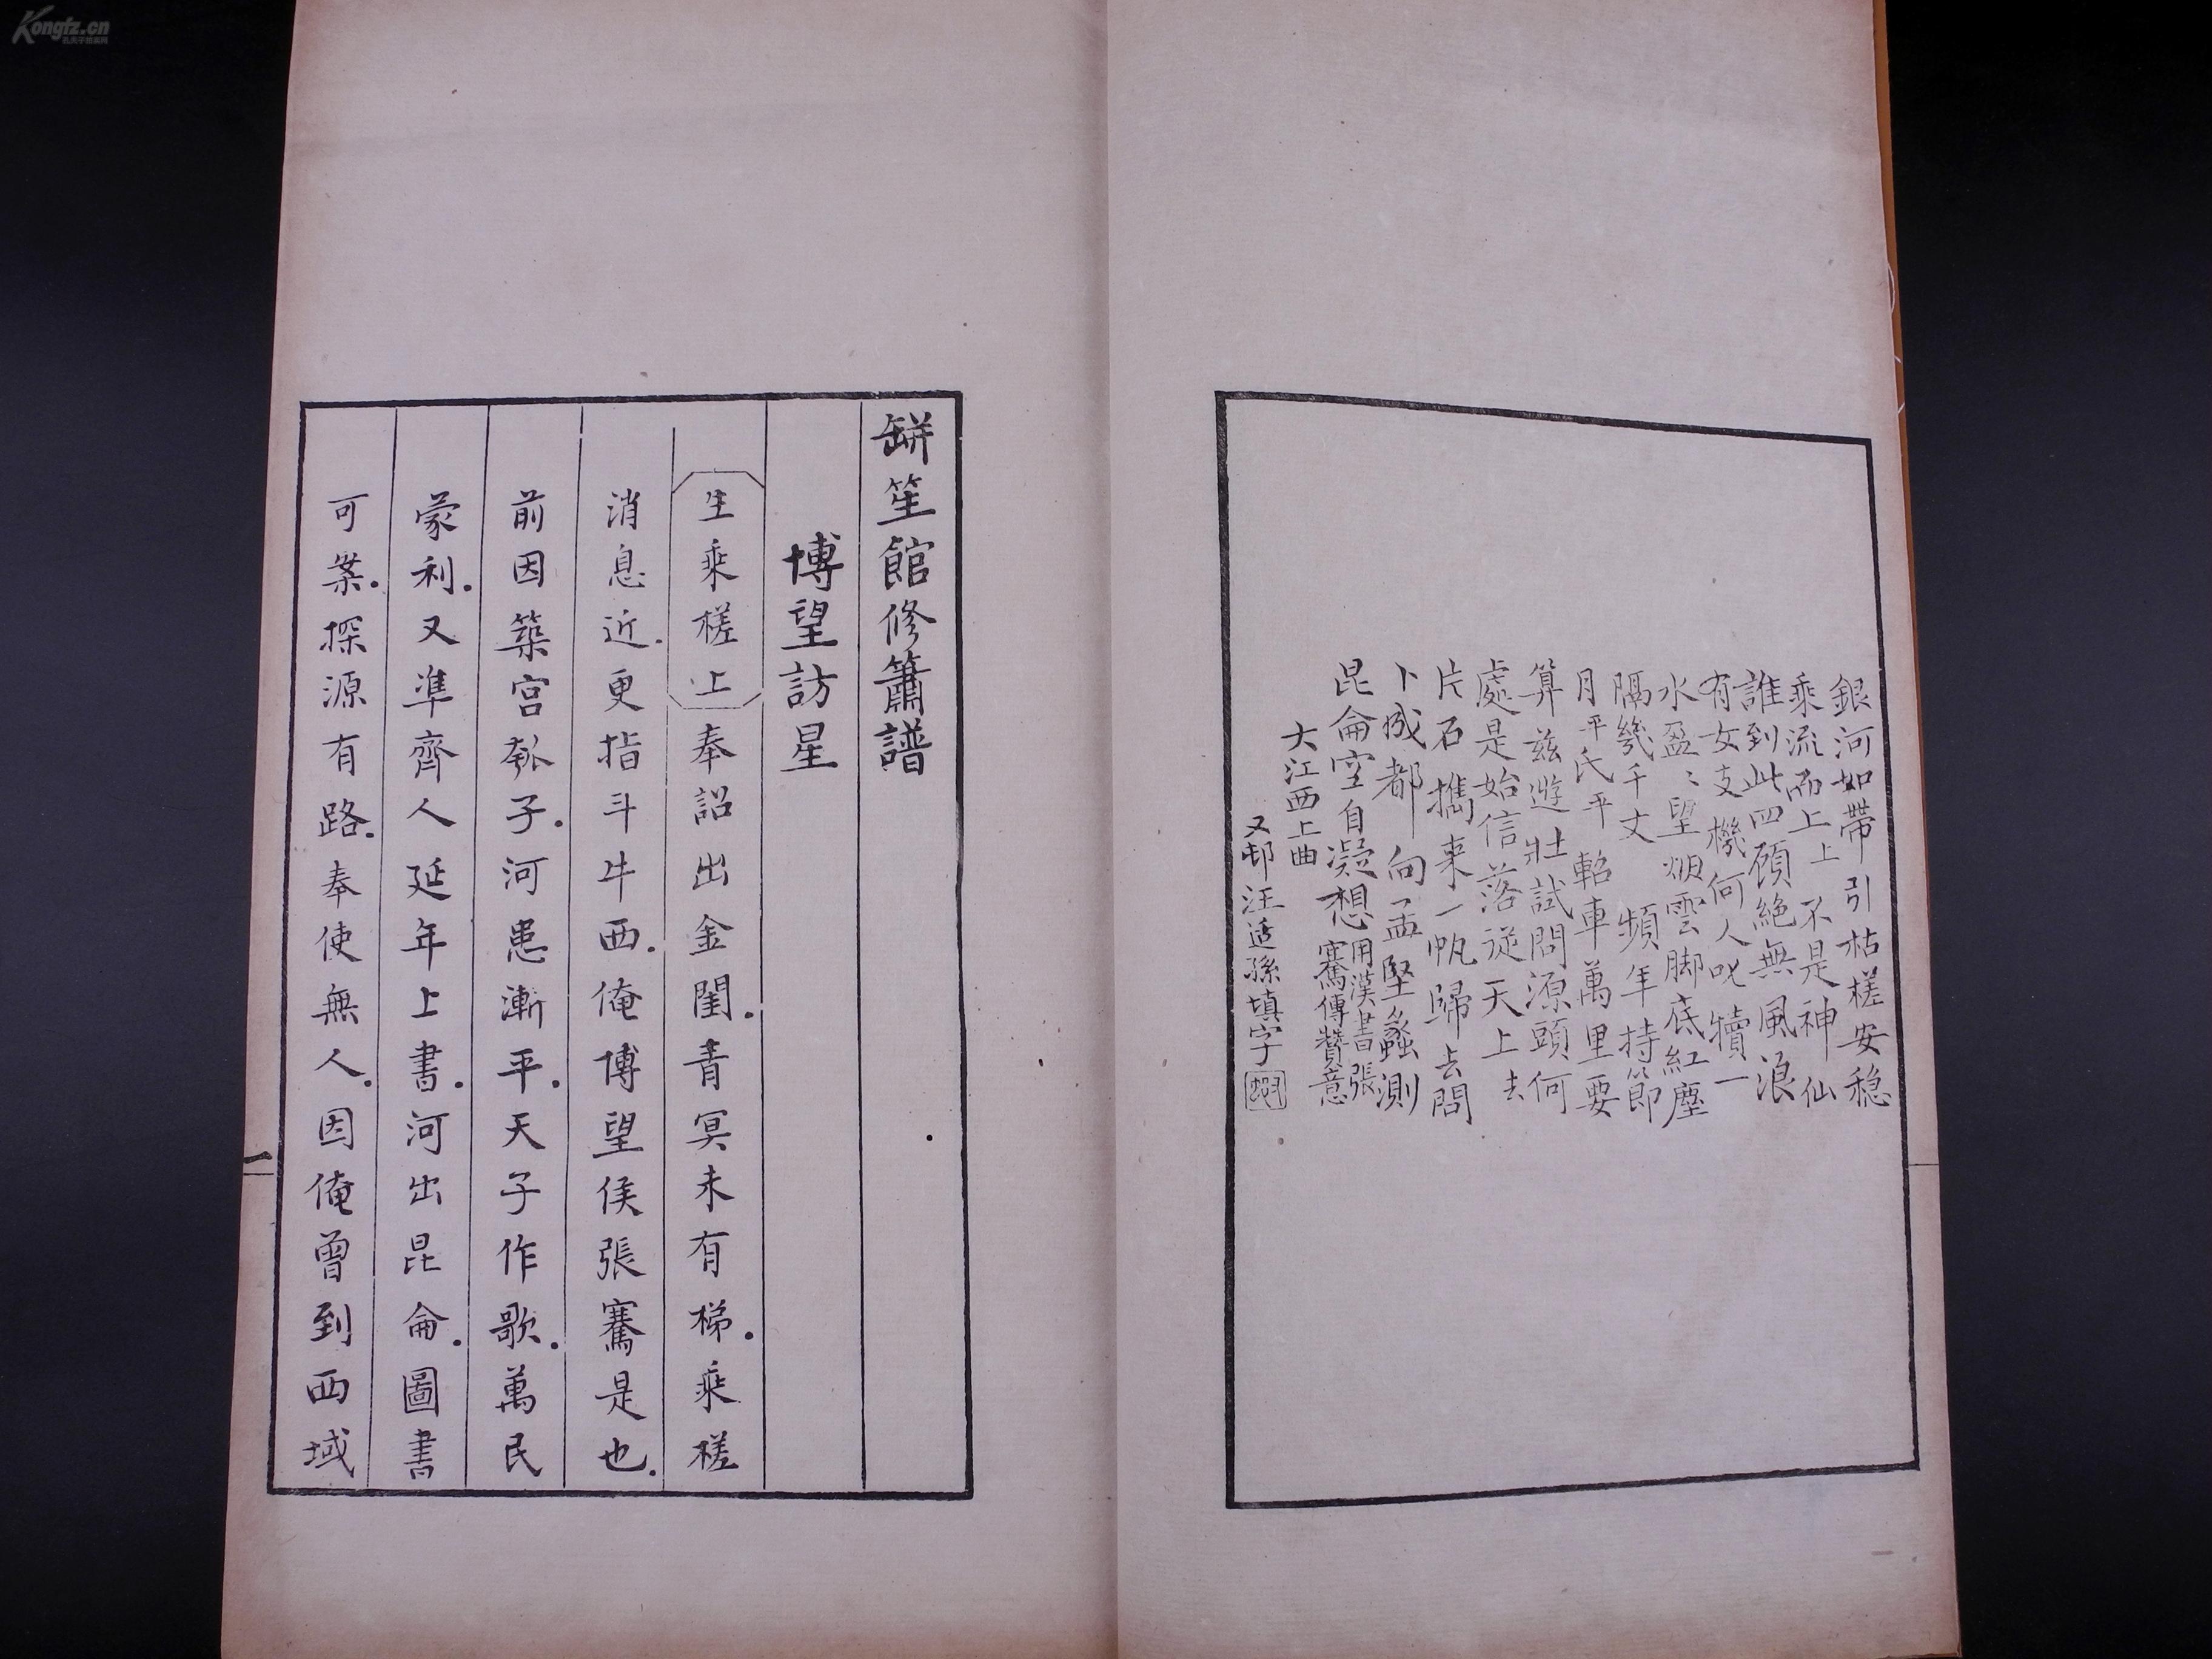 Kongfz.cn
孔夫子旧书网
銀河如帶引枯槎安穩
乘流而上上不是神仙
誰到此四顧絶無風浪
有女支機何人叱犢一
水盈〻望烟雲脚底紅塵
隔幾千丈 頻年持節
月平氏平 軺車萬里要
算茲遊壯試問源頭何
處是始信落從天上去
片石攜來一帆歸去問
卜成都向孟堅蠡測
昆侖空自凝想用漢書張
騫傳贊意
大江西上曲
又邨汪适孫填字
缾笙館修簫譜
博望訪星
生乘槎上奉詔出金閨.青冥未有梯.乘槎
消息近.更指斗牛西.俺博望侯張騫是也.
前因築宮瓠子.河患漸平.天子作歌.萬民
蒙利.又準齊人延年上書.河出昆侖.圖書
可案.探源有路.奉使無人.因俺曾到西域
一